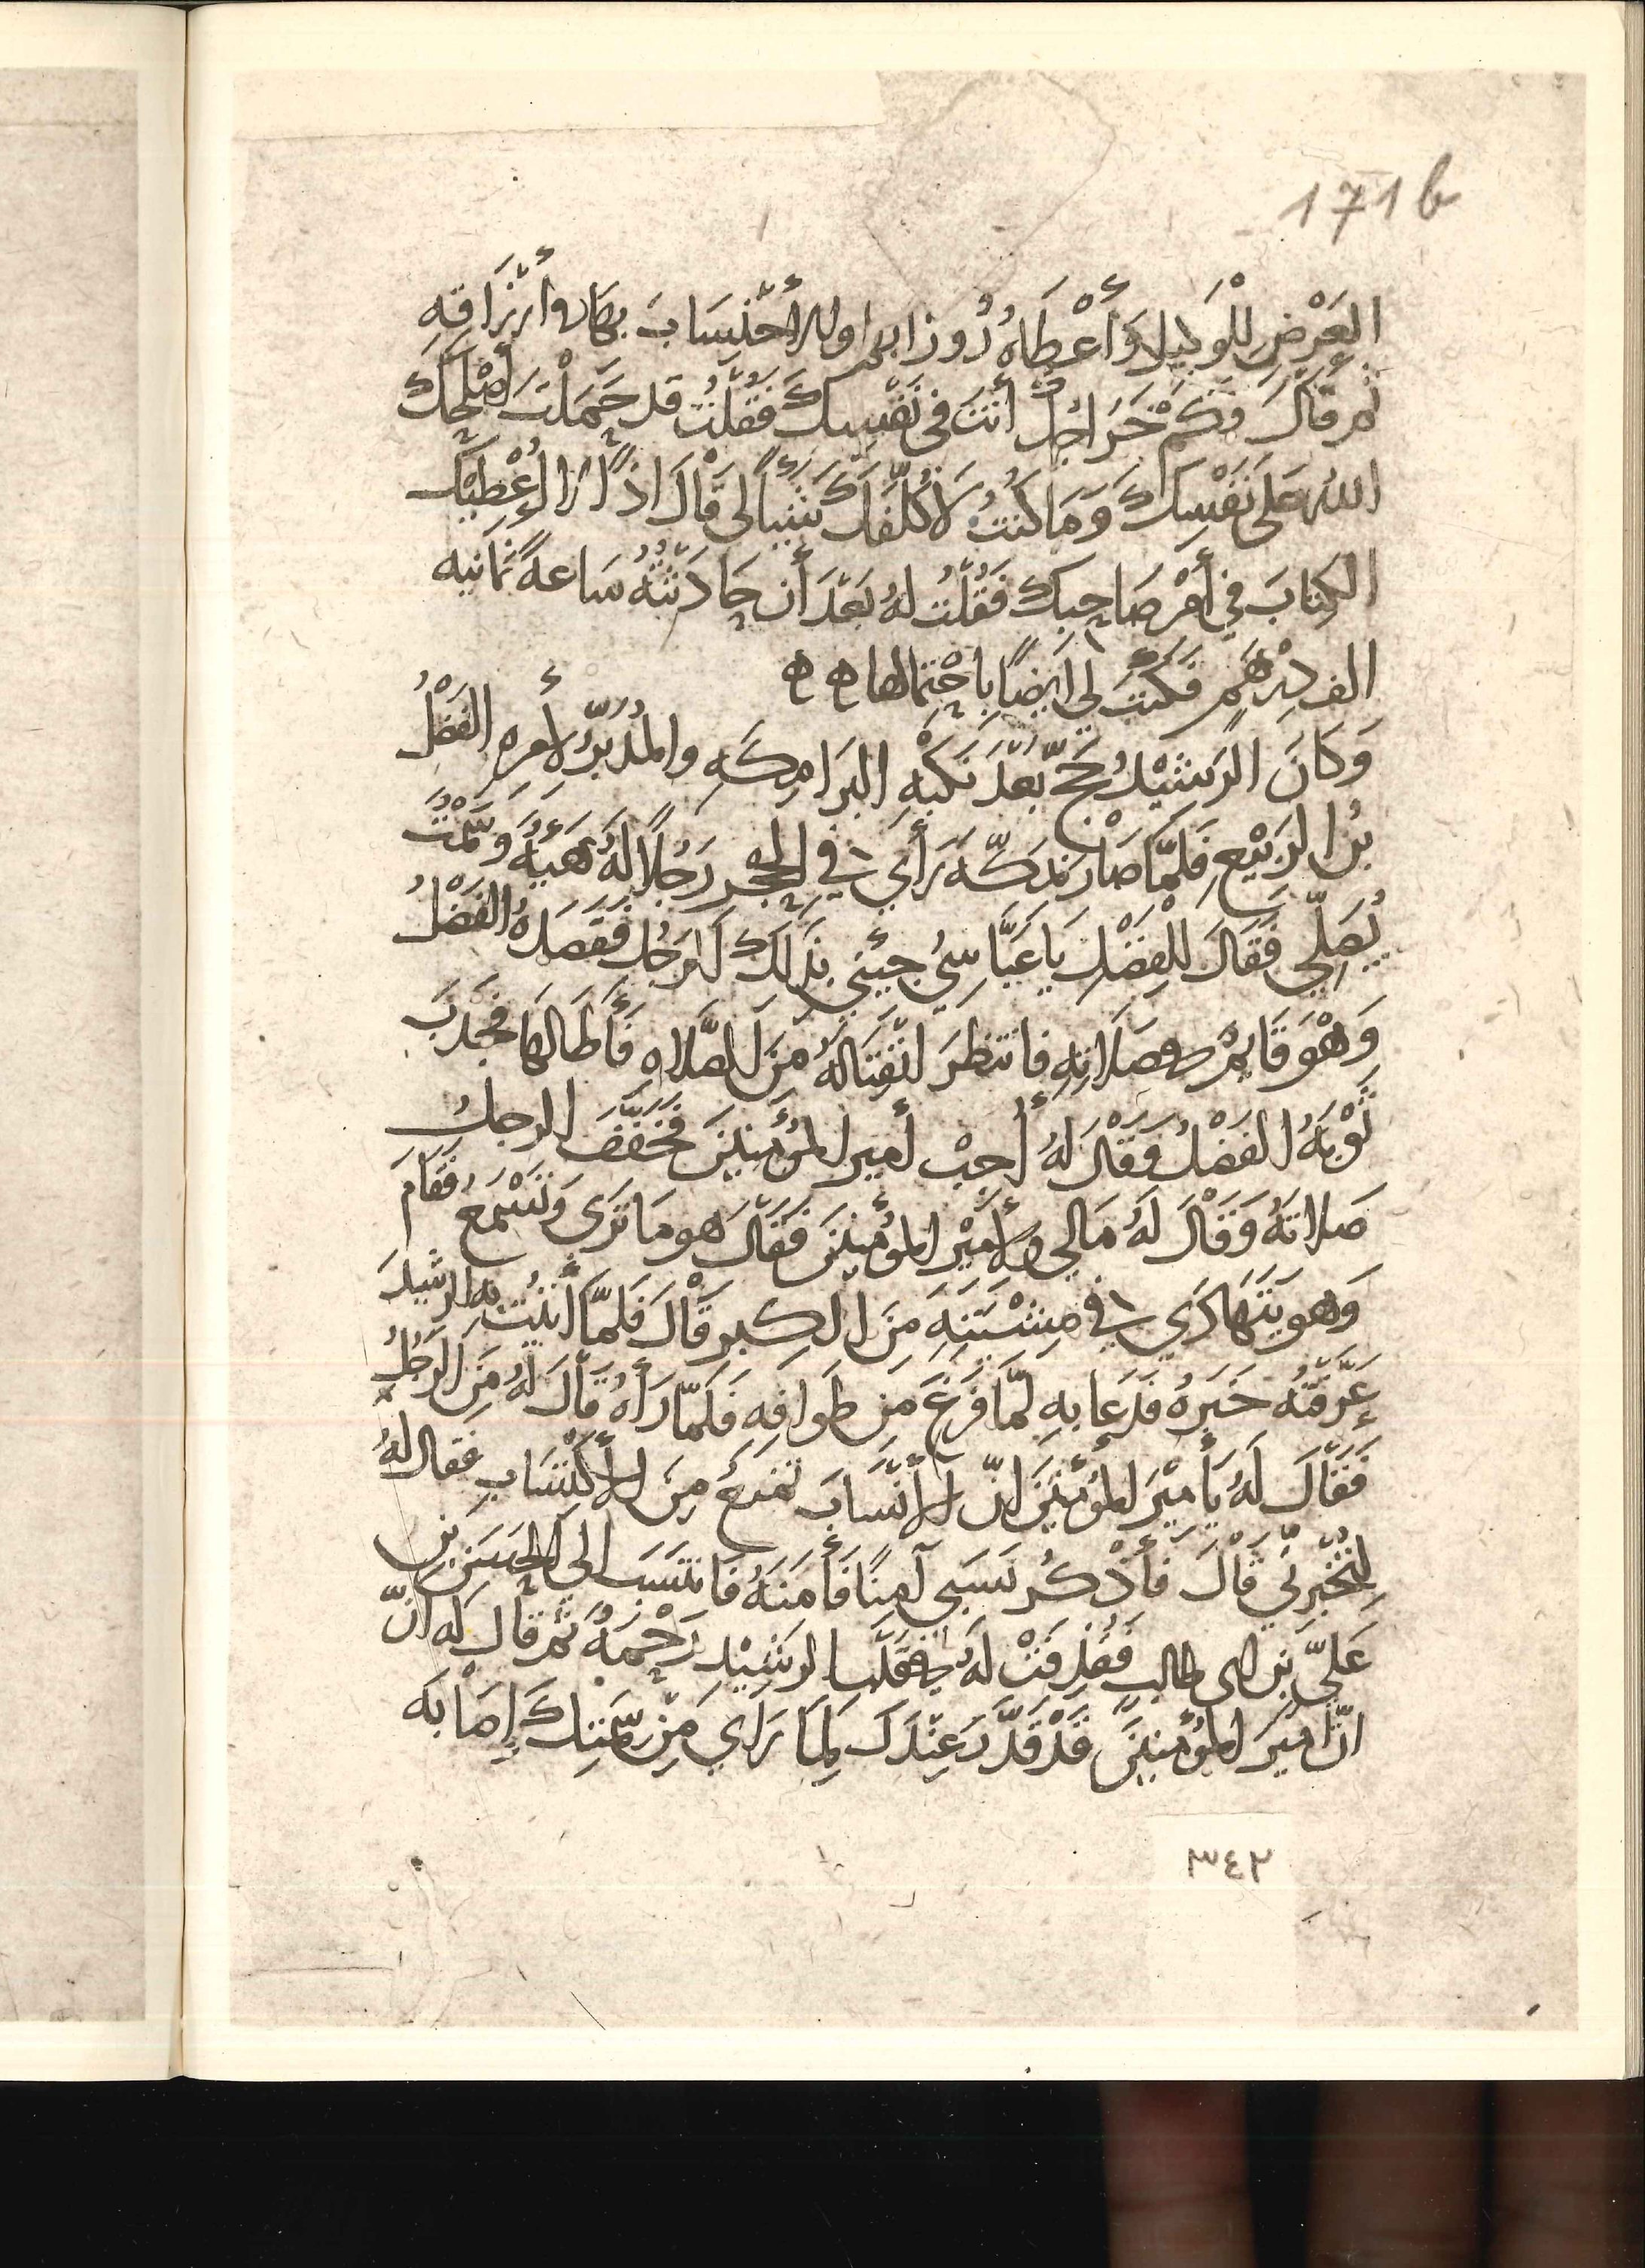 171 b
العَرْضِ لِلْوَكيلِ وَأَعْطَاهُ رُوزابهم اولا أحْتِسَابَ بها وأرْزَاقِهِ
ثم قَالَ وَكَمْ خَرَاجُ أنتَ في نَفْسِكَ فَقُلْتُ قد حَمَلْتَ أصْلَحَكَ
الله على نَفْسِكَ وَمَا كُنتُ لَأُكَلِّفَكَ شَيْئًا لي قَالَ اذًا لا أُعْطِيكَ
الكِتابَ في أمْرِ صَاحِبِكَ فَقُلْتُ لهُ بَعْدَ أن حَادَثْتُهُ سَاعةً ثَمَانيه
الف دِرْهَمٍ فكَتبَ لي ايْضًا باحْتِمَالها ه ه
وَكَانَ الرَشِيْدُ حَجَّ بَعْدَ نَكْبَةِ البَرَامِكَهِ والمُدَبِّرُ لأمره الفَضْلُ
بْنُ الرَبِيْعِ فَلَمَّا صَارَ بمَكّهَ رَأَي في الحِجْرِ رَجُلاً لَهُ هَيْئَهُ وَسَمْتُ
يُصَلِّي فَقَالَ لِلْفَضْلِ يَا عَبَّاسِيُّ جِئْنِي بذَلكَ الرَجُلِ فَقَصَدَهُ الفَضْلُ
وَهْوَ قَائِمٌ في صَلَاتِهِ فانتظرَ انْفِتَالَهُ مِنَ الصَّلاه فَأطَالَهَا فجَذَبَ
ثَوْبَهُ الفَضْلُ وَقَالَ لَهُ أَجِبْ أميرَ المؤْمِنِينَ فَخَفَّفَ الرجلُ
صَلاتهُ وَقَالَ لَهُ مَا لي ولِأمِيْرِ المؤْمِنِينَ فَقَالَ هو مَا تَرَى وَتَسْمَعُ فَقَامَ
وَهو يَتَهَادَي في مِشْيَتِهِ مِنَ الكِبرِ قَالَ فَلَمَّا أَتَيْتُ به الرشيدَ
عَرَّفْتُه خَبَرَهُ فَدَعَا بهِ لمَّا فَرَغَ مِن طَوافِهِ فَلَمَّا رَأهُ قَالَ لَهُ مَنِ الرَجُلُ
فَقَالَ لَهُ يَأمِيْرَ المُؤْمِنِينَ انّ الأنْسَابَ تمنَعُ مِنَ الأكْتِسَابِ فقال لهُ
لِتُخْبِرنِّي قَالَ فَأَذْكُر نَسَبي آمِنًا فَأمَنَهُ فَانتَسَبَ الي الحسَن بن
عَليّ بن ابي طالبٍ فَقُذِفَتْ لهُ في قَلْبِ الرشِيْدِ رَحْمهٌ ثم قال له انّ
انّ أميرَ المؤْمِنِينَ قَدْ قَدَّرَ عِنْدَكَ لِمَا رَاي مِن سَمْتِكَ إصَابَه
٣٤٢